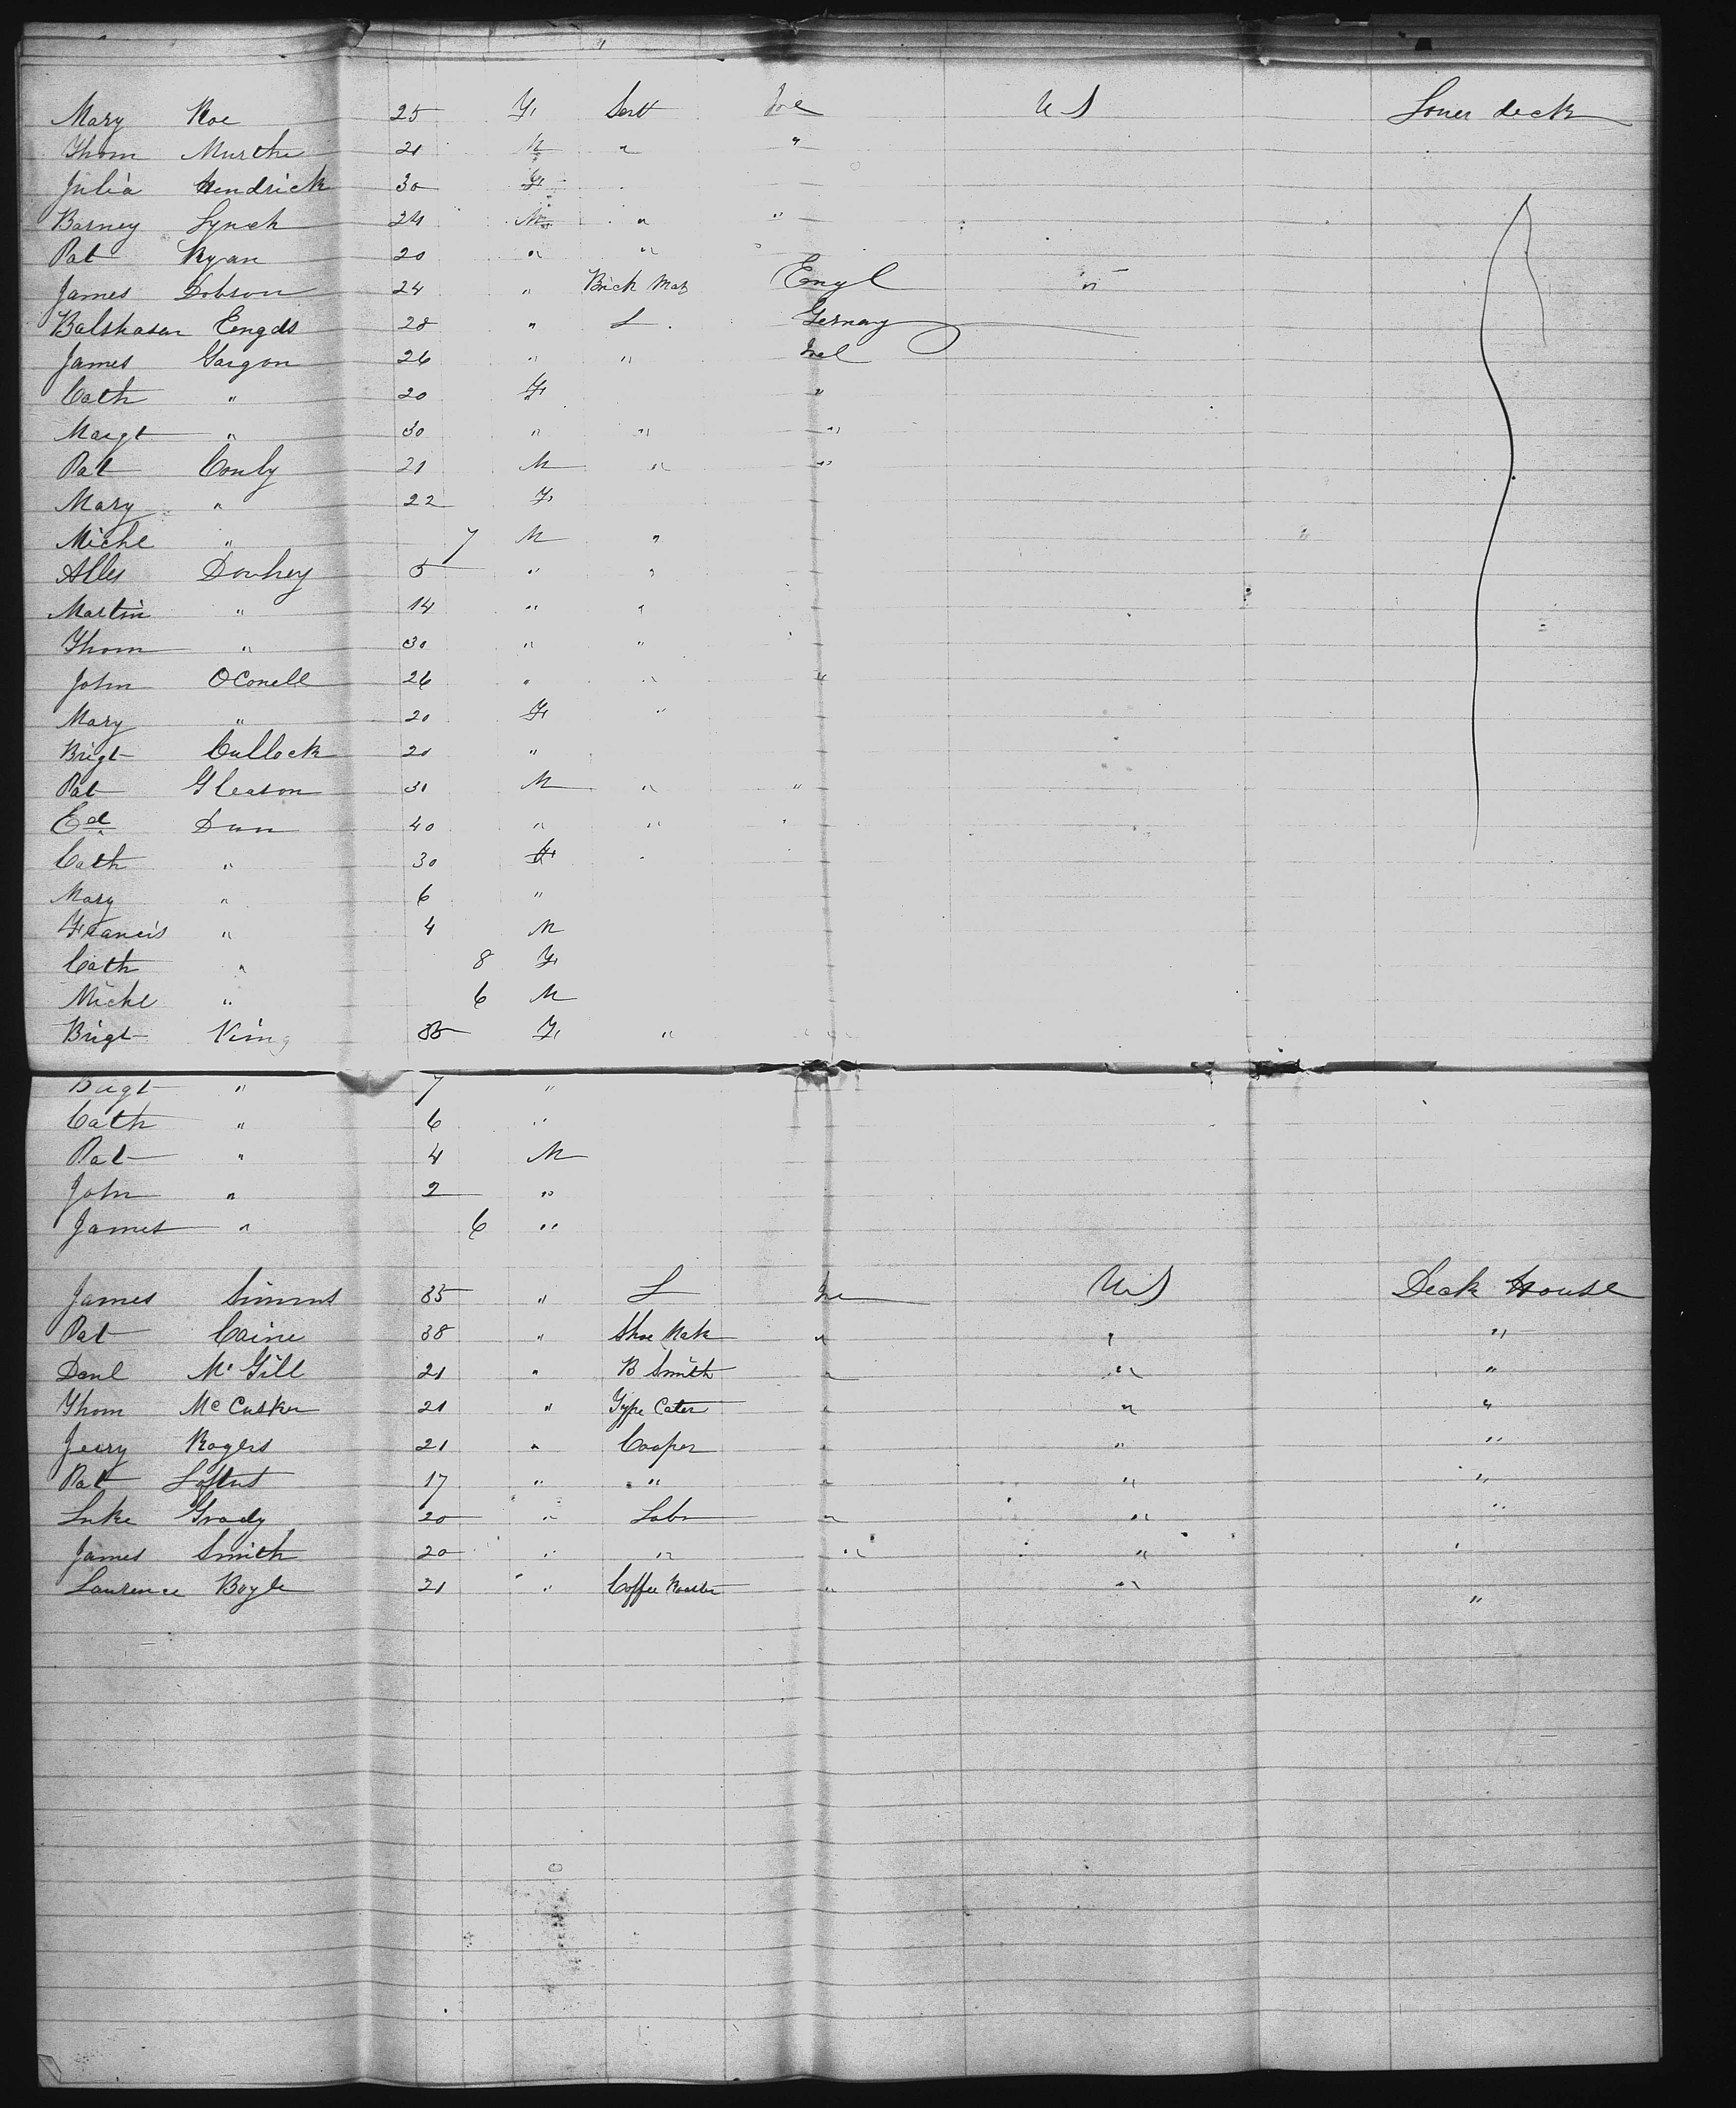 Mary Roe 25 F. Sert Ire U S Lower deck
Thom Murthe 21 M " "
Julia Hendrick 30 F
Barney Lynch 24 M " "
Pat Ryan 20 " "
James Dobson 24 " Brick Mak Engl "
Balshasar Engds 28 " L Germany
James Gargon 26 " " Irel
Cath " 20 F "
Margt " 30 " " "
Pat Conly 21 M " "
Mary " 22 F.
Michl " 7 M "
Alles Dowhey 5 " "
Martin " 14 " "
Thom " 30 " "
John OConell 26 " " "
Mary " 20 F "
Brigt Cullock 20 "
Pat Gleason 31 M " "
Ed Dun 40 " " "
Cath " 30 F
Mary " 6 "
Francis " 4 M
Cath " 8 F
Michl " 6 M
Brigt King 35 F "
Brigt " 7 "
Cath " 6 "
Pat " 4 M
John " 2 "
James " 6 "
James Simms 35 " L Ire U S Deck House
Pat Caine 38 " Shoe Mak " " "
Danl McGill 21 " B Smith " " "
Thom McCusker 21 " Type Cater " " "
Jerry Rogers 21 " Cooper " " "
Pat Loftus 17 " " " " "
Luke Grady 20 " Labr " " "
James Smith 20 " " " " "
Laurence Boyle 21 " Coffee Roaster " " "